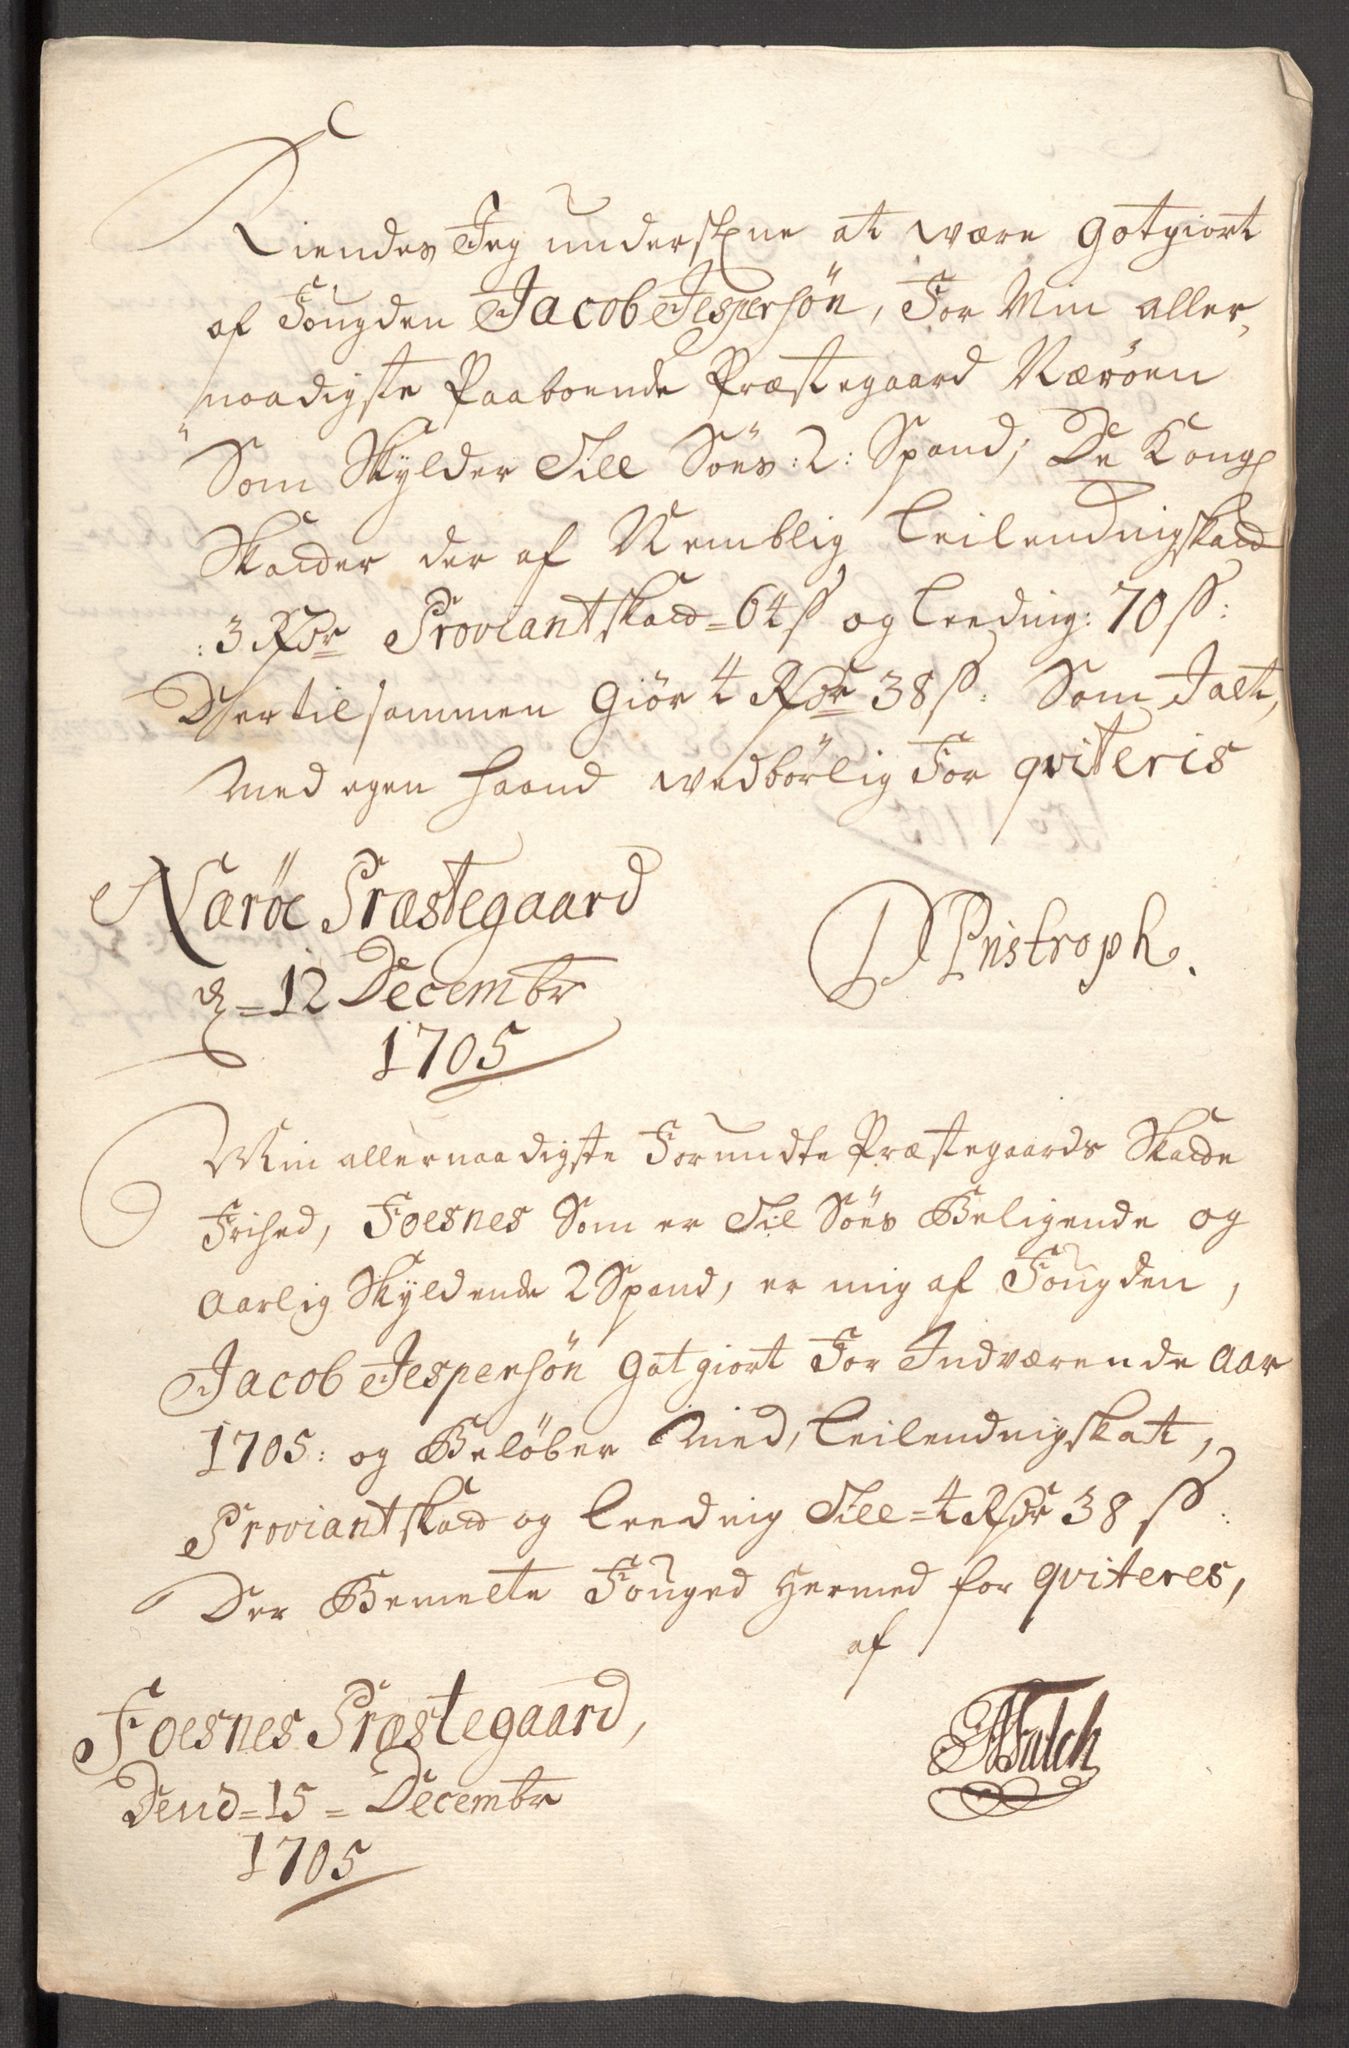 Kiendes Jeg underskne at være gotgiort
af Fougden Jacob Jespersøn, For Min aller-
naadigste Paaboende Præstegaard Nærøen
Som Skylder Till Söes: 2: Spand, De Kongl
Skatder der af Nemblig Leilendingskatd
: 3 Rdr Proviantskatd = 64 ß og Leeding: 70 ß:
Der tilsammen Giör 4 Rdr 38 ß: Som Jalt,
Med egen Haand vedbörlig For qviteris
Næröe Præstegaard
d = 12 Decembr
1705
Min allernaadigste Forundte Præstegaards Skatde
Frihed, Foesnes Som er Til Söes Beligende og
Aarlig Skyldende 2 Spand, er mig af Fougden,
Jacob Jespersøn Gotgiort For Indværende Aar
1705: og Belöber Med, Leilendingskat,
Proviantskatd og Leeding Till = 4 Rdr 38 ß:
Der Bemelte Fouged Hermed for qviteres,
af
Foesnes Præstegaard,
Dend = 15 = Decembr
1705
Falch